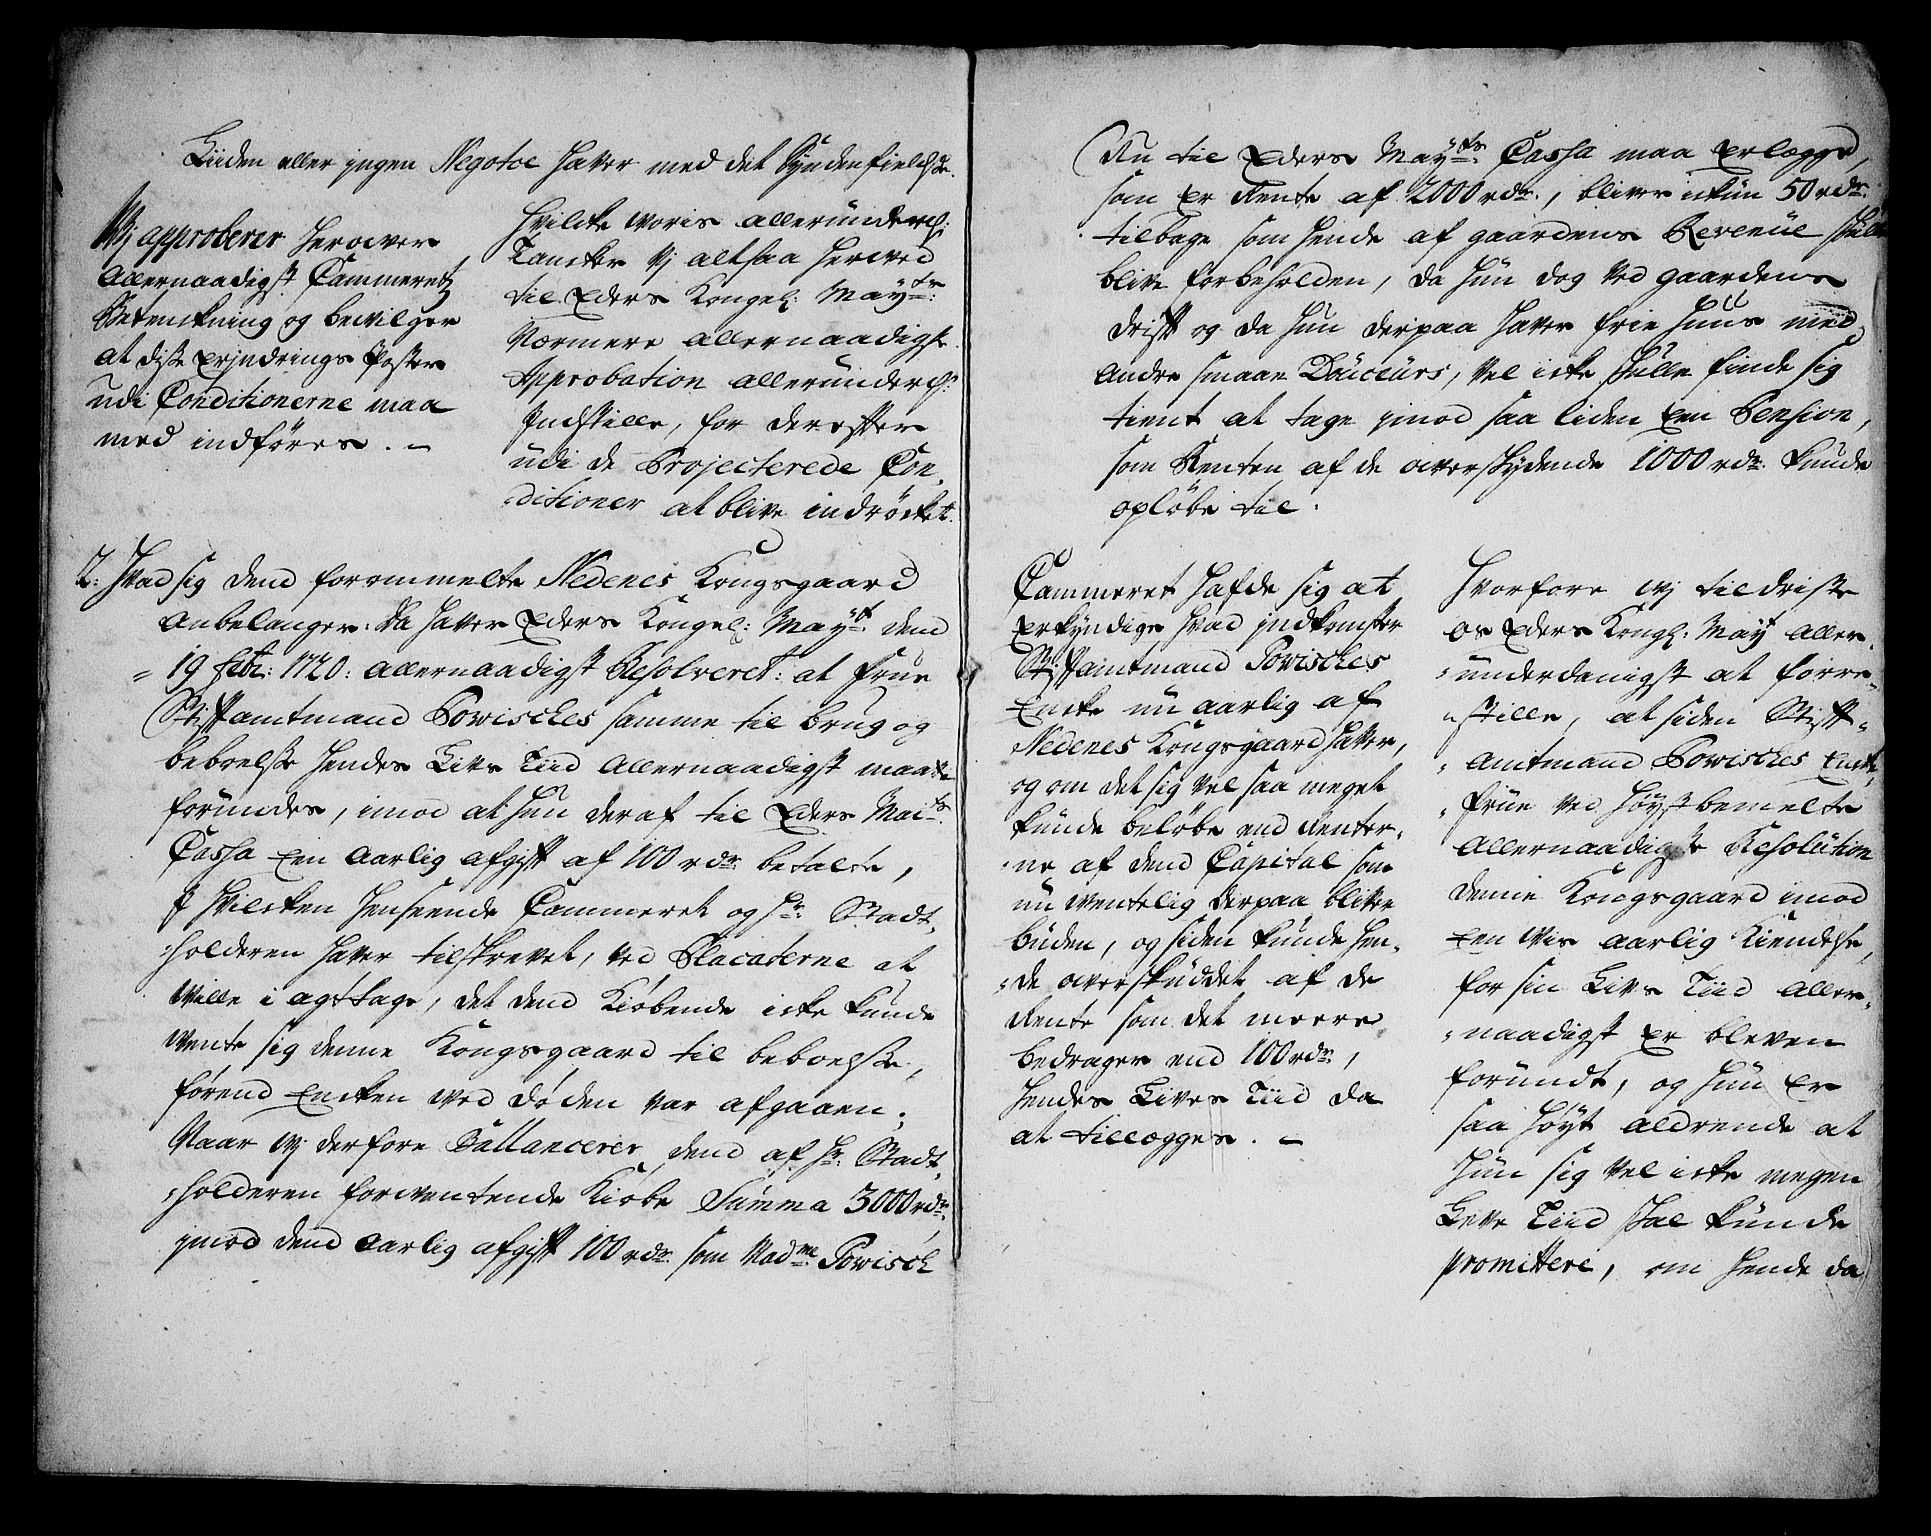 Liiden eller jngen Negotce haver med det Syndenfieldske.
Wj approberer herover
Allernaadigst Cammerets
Betenkning og bevilger
at diste erjndrings Poster
udi Conditionerne maa
med indföres. —
Hvilcke woris allerunderd:
Tancker wj altsaa herved
til Eders Kongel: Mayts:
Nærmere allernaadigste
Approbation allerunderd:
Indstille, for derefter
udi de Projecterede Con-
-ditioner at blive indröcket.
2: Hvad sig dend forommelte Nedenes Kongsgaard
Anbelanger: Da haver Eders Kongel: Mayt: dend
19 Febr: 1720: Allernaadigst Resolveret: at Frue
Stiftamtmand Powisches samme til brug og
beboelse hendes Livs Tiid Allernaadigst maatte
forundes, imod at hun deraf til Eders Maits:
Cassa Een Aarlig afgift af 100 rdr: betalte,
J hvilcken henseende Cammeret og Hr: Stadt-
-holderen haver tilskrevet, ved Placaterne at
ville i agttage, det dend Kiöbende icke kunde
vente sig denne Kongsgaard til beboelse,
förend Encken ved döden var afgaaen;
Naar wj derfore Ballancerer, dend af Hr: Stadt-
-holderen forwentende Kiöbe Summa 3000 rdr:
jmod dend aarlig afgift 100 rdr: som Madme: Powisch
Nu til Eders Mayts: Cassa maa Erlægge,
som er Rente af 2000 rdr:, bliver ickun 50 rdr:
tilbage som hende af gaardens Revenüe skulle
blive forbeholden, da hun dog ved gaardens
drift og da hun derpaa haver frie huus med
Andre smaae Douceurs, vel icke skulle finde sig
tient at tage jmod saa liden een Pension,
som Renten af de overskydende 1000 rdr: kunde
oplöbe til.
Cammeret hafde sig at
Erkyndige hvad jndkomster
Stiftamtmand Powisches
Encke nu aarlig af
Nedenes Kongsgaard haver,
og om det sig vel saa meget
kunde belöbe end Renter-
-ne af dend Capital som
nu wentelig derpaa bliver
buden, og siden kunde hen-
-de overskuddet af de
Rente som det meere
bedrager end 100 rdr:,
hendes Lives Tiid da
at tillegges. —
Hvorfore wj tildriste
os Eders Kongl: Mayt Aller-
-underdanigst at forre-
-stille, at siden Stift-
-Amtmand Powisches Encke
-Frue ved höystbemelte
Allernaadigste Resolution
denne Kongsgaard imod
Een wis aarlig Kiendelse,
for sin Livs Tiid Aller-
-naadigst er bleven
forundt, og hun er
saa höyt aldrende at
hun sig vel icke megen
Levetiid skal kunde
promittere, om hende da